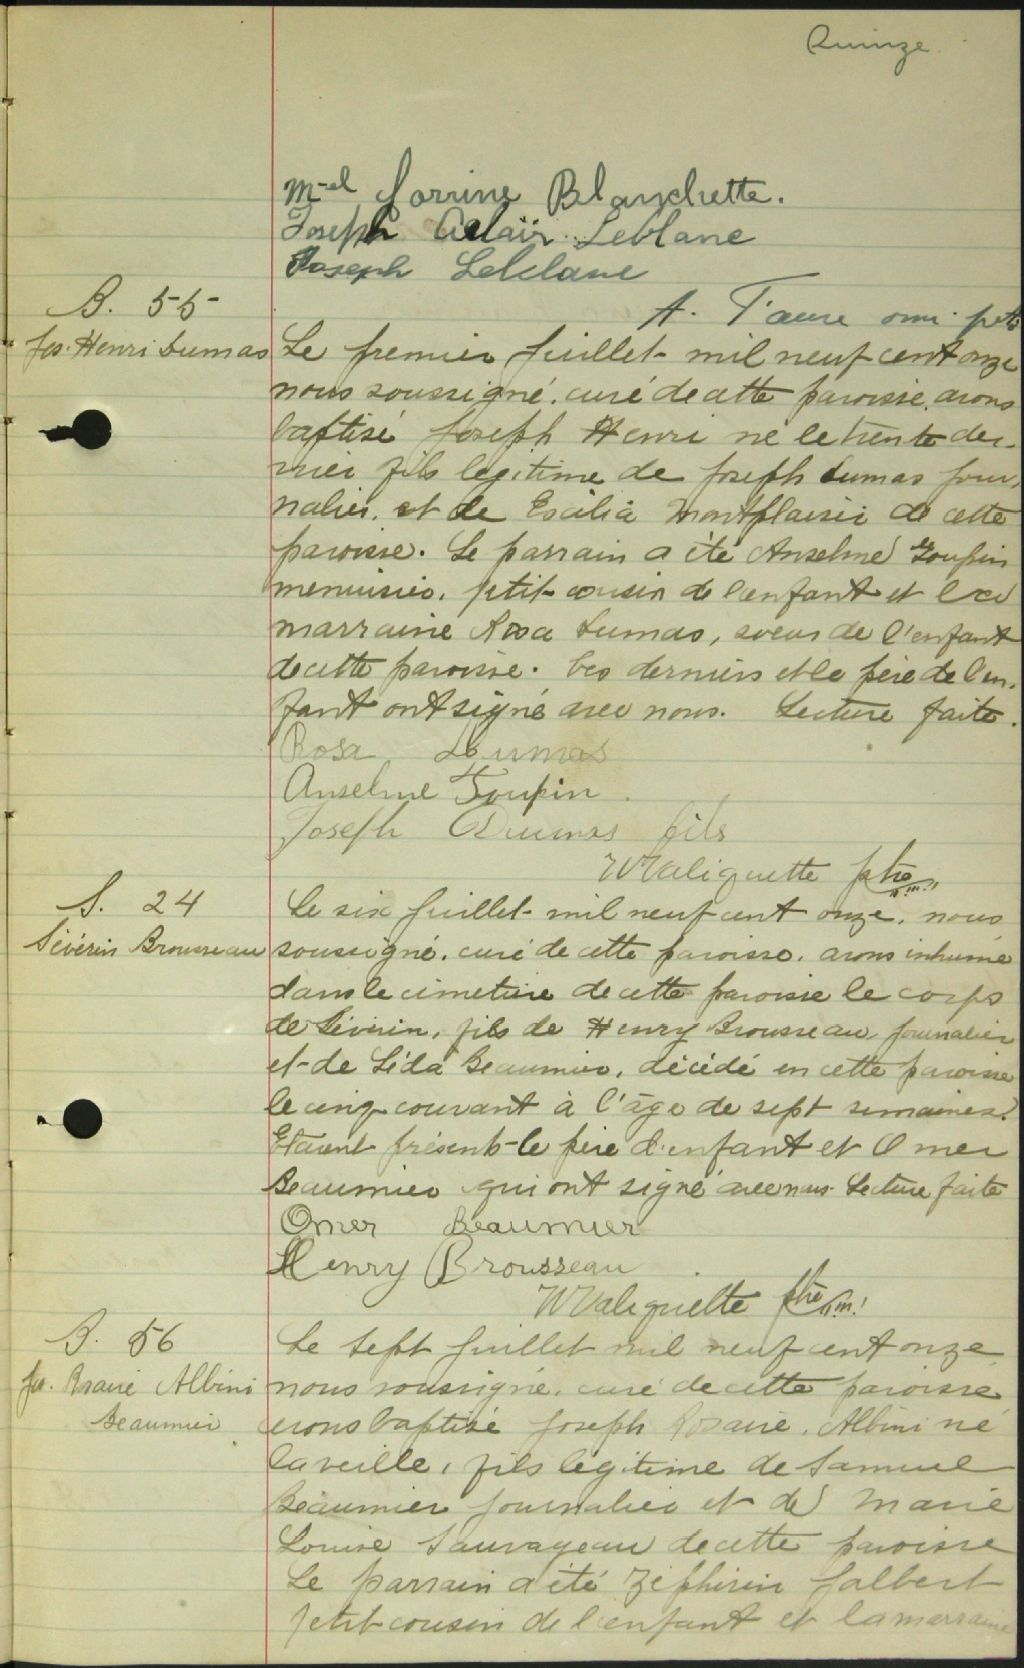 Quinze
M-el Lorrine Blanchette.
Joseph Adaïr Leblanc
Joseph Leblanc
A. omi. ptr
B. 55
Jos. Henri Dumas
Le premier Juillet mil neuf cent onze
nous soussigné, curé de cette paroisse, avons
baptisé Joseph Henri né le trente der-
nier fils légitime de Joseph Dumas jour-
nalier, et de Exilia Montplaisir de cette
paroisse. Le parrain a été Anselme Toupin
menuisier, petit cousin de l'enfant et la
marraine Rosa Dumas, soeur de l'enfant
de cette paroisse. Ces derniers et le père de l'en-
fant ont signé avec nous. Lecture faite.
Rosa Dumas
Anselme Toupin
Joseph Dumas fils
W Valiquette ptre
S. 24
Sévérin Brousseau
Le six Juillet mil neuf cent onze, nous
soussigné, curé de cette paroisse, avons inhumé
dans le cimetière de cette paroisse le corps
de Sévérin, fils de Henry Brousseau, journalier
et de Léda Beaumier, décédé en cette paroisse
le cinq courant à l'âge de sept semaines.
Etaient présents le père d'enfant et Omer
Beaumier qui ont signé avec nous. Lecture faite
Omer Beaumier
Henry Brousseau
W Valiquette ptre
B. 56
Jos. Rosaire Albini
Beaumier
Le sept Juillet mil neuf cent onze
nous soussigné, curé de cette paroisse
avons baptisé Joseph Rosaire, Albini né
la veille, fils légitime de Samuel
Beaumier journalier et de Marie
Louise Sauvageau de cette paroisse
Le parrain a été Zéphirin Jalbert
petit cousin de l'enfant et la marraine